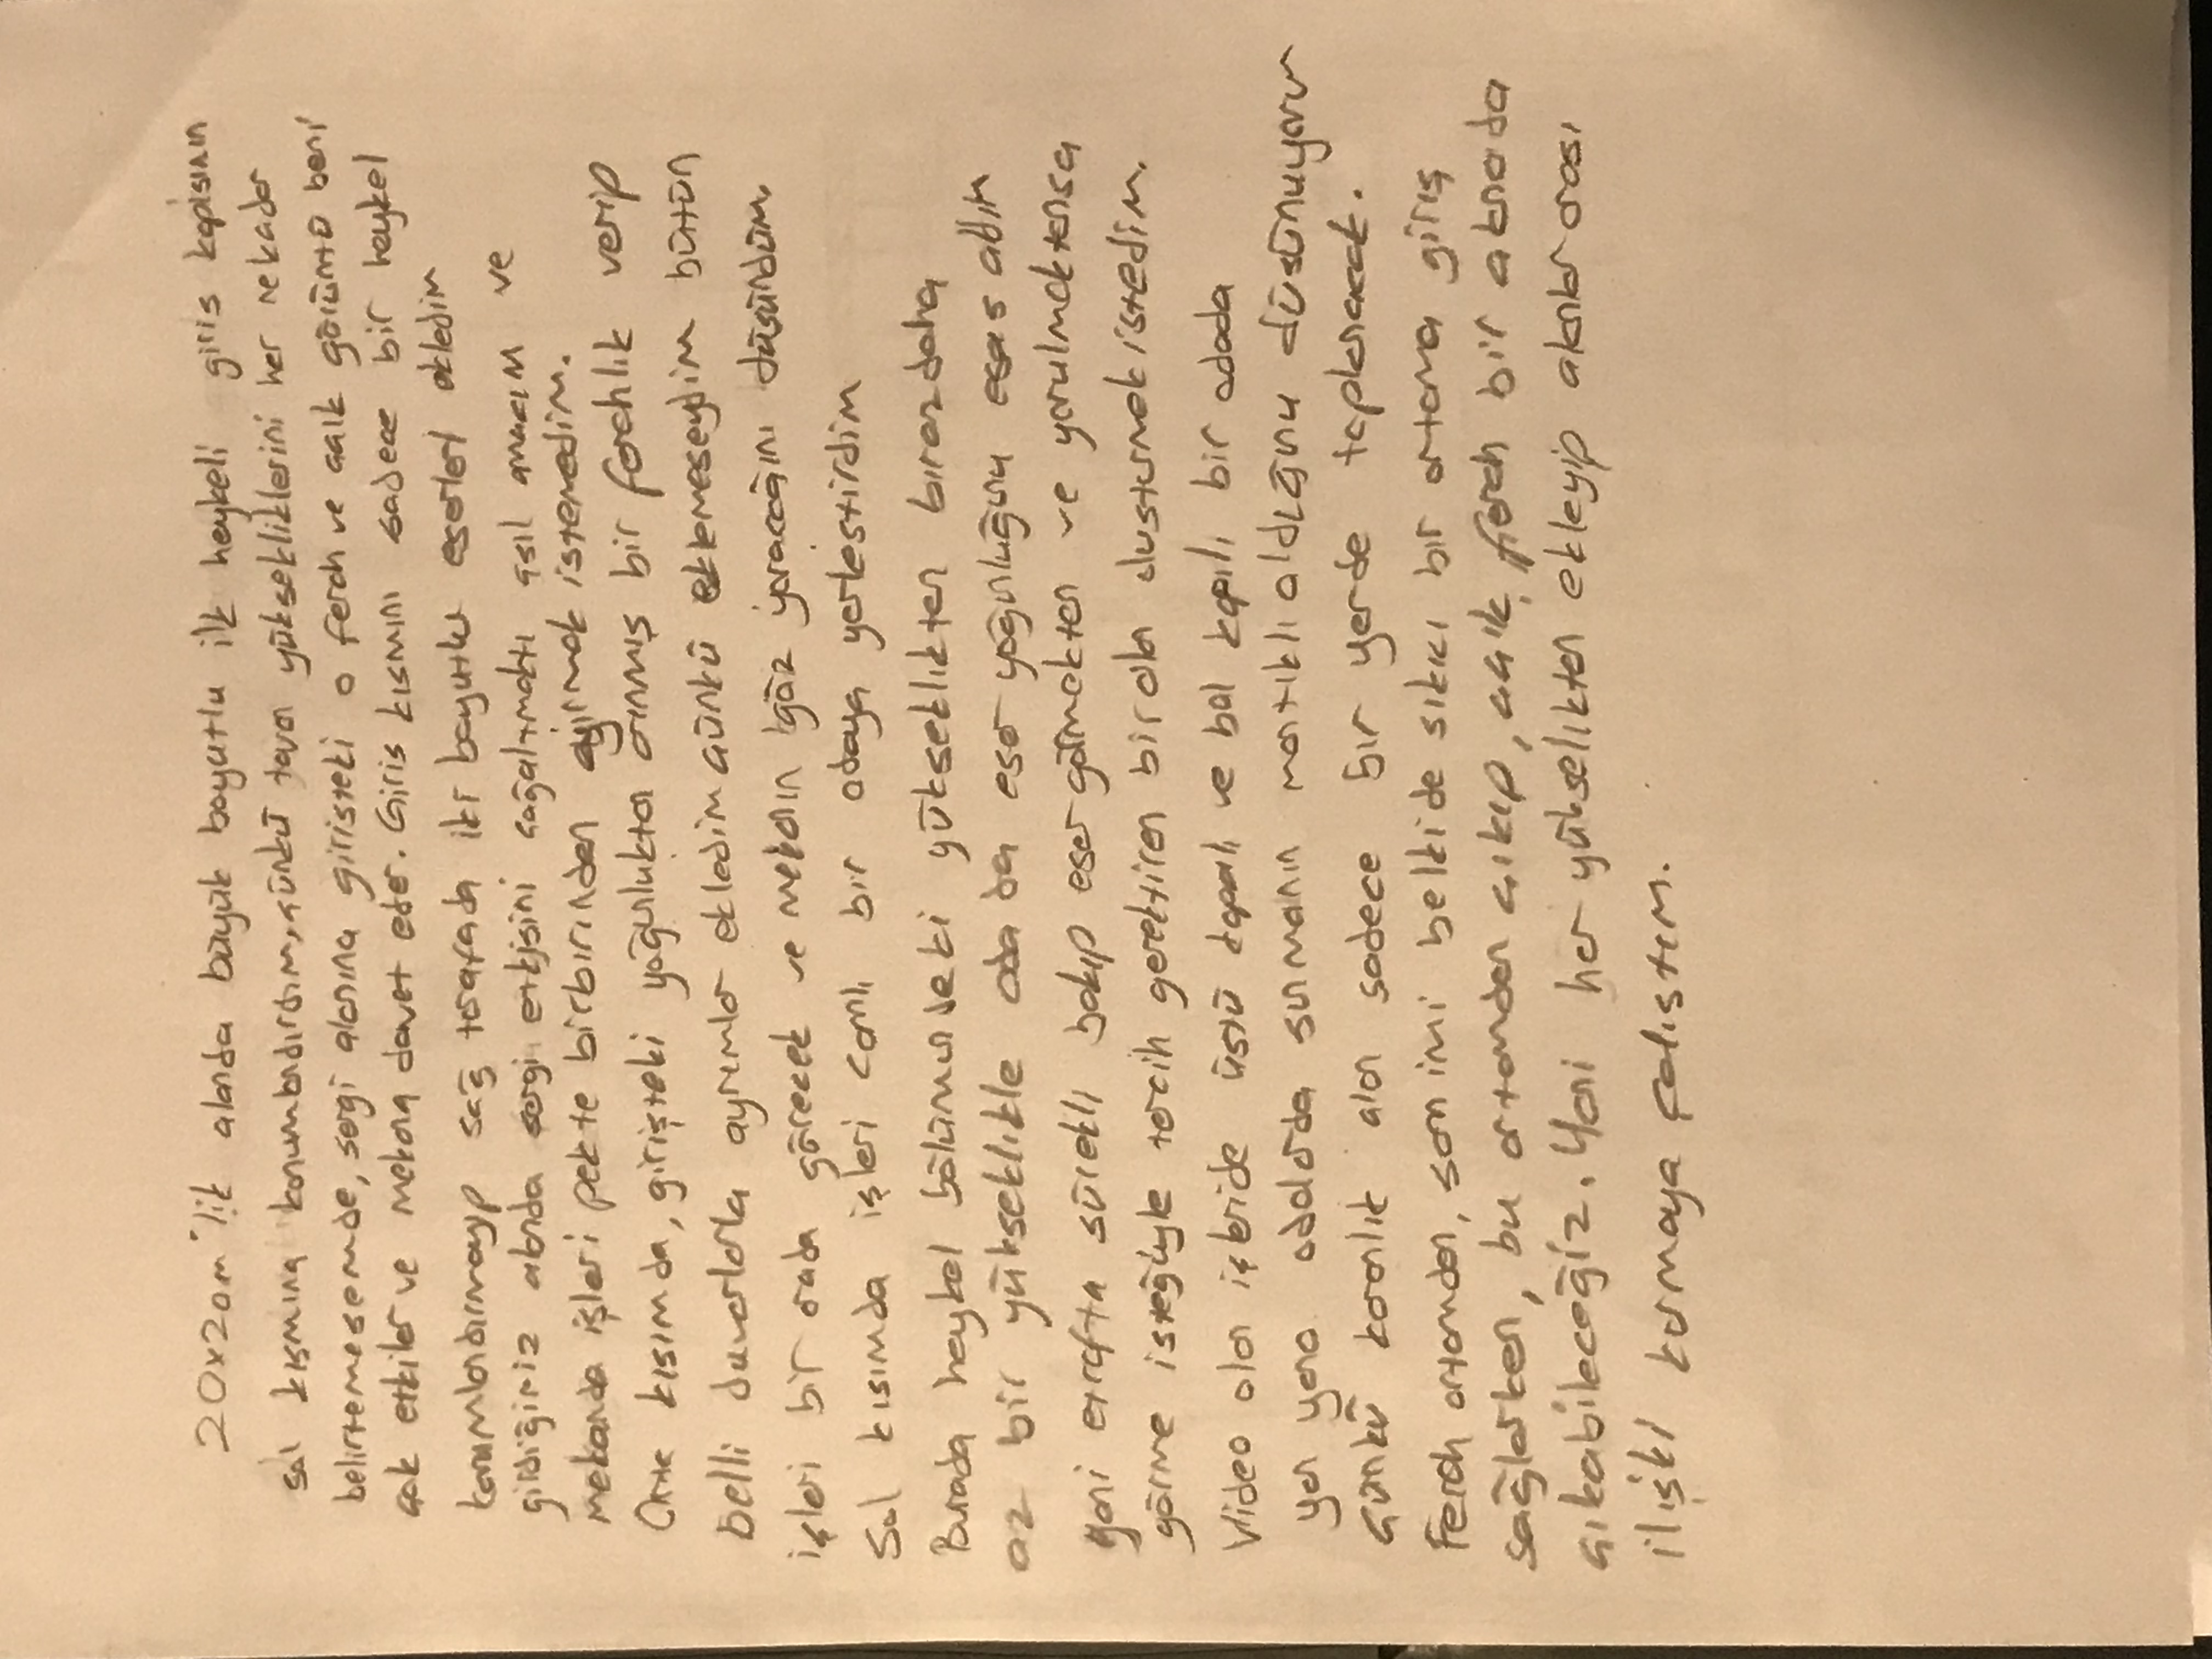 20x20m'lik alanda büyük boyutlu ilk heykeli giris kapisının
sol kısmına konumlandırdım, çünkü tavan yüksekliklerini her nekadar
belirtemesemde, sergi alanına giristeki o ferah ve açık görüntü beni
çok etkiler ve mekana davet eder. Giris kısmını sadece bir heykel
konumlandırmayıp sağ tarafada iki boyutlu eserleri ekledim
girdiğimiz alanda sergi etkisini çoğaltmaktı asıl amacım ve
mekanda işleri pekte birbirinden ayırmak istemedim.
Orta kısımda, girişteki yoğunluktan arınmış bir ferahlık verip
belli duvarlarla ayrımlar ekledim çünkü eklemeseydim bütün
işleri bir arada görecek ve mekanın göz yoracağını düsündüm.
Sol kısımda işleri camlı bir odaya yerlestirdim
Burada heykel bölümündeki yükseklıkten birazdaha
az bir yükseklıkle oda da eser yoğunluğunu esas aldım
yani etrafta sürekli bakıp eser görmekten ve yorulmaktansa
görme isteğiyle tercih gerektiren bir alan olusturmak istedim.
Video olan işleride üstü kapalı ve bol kapılı bir odada
yan yana odalarda sunmanın mantıklı olduğunu düsünuyorum
çünkü karanlık alan sadece bir yerde toplanacak.
Ferah ortamdan, samimi belkide sıkıcı bir ortama giriş
sağlarken, bu ortamdan çıkıp, açık, ferah bir alanada
çıkabileceğiz. Yani her yükselıkten ekleyip alanlar arası
ilişki kurmaya çalıstım.